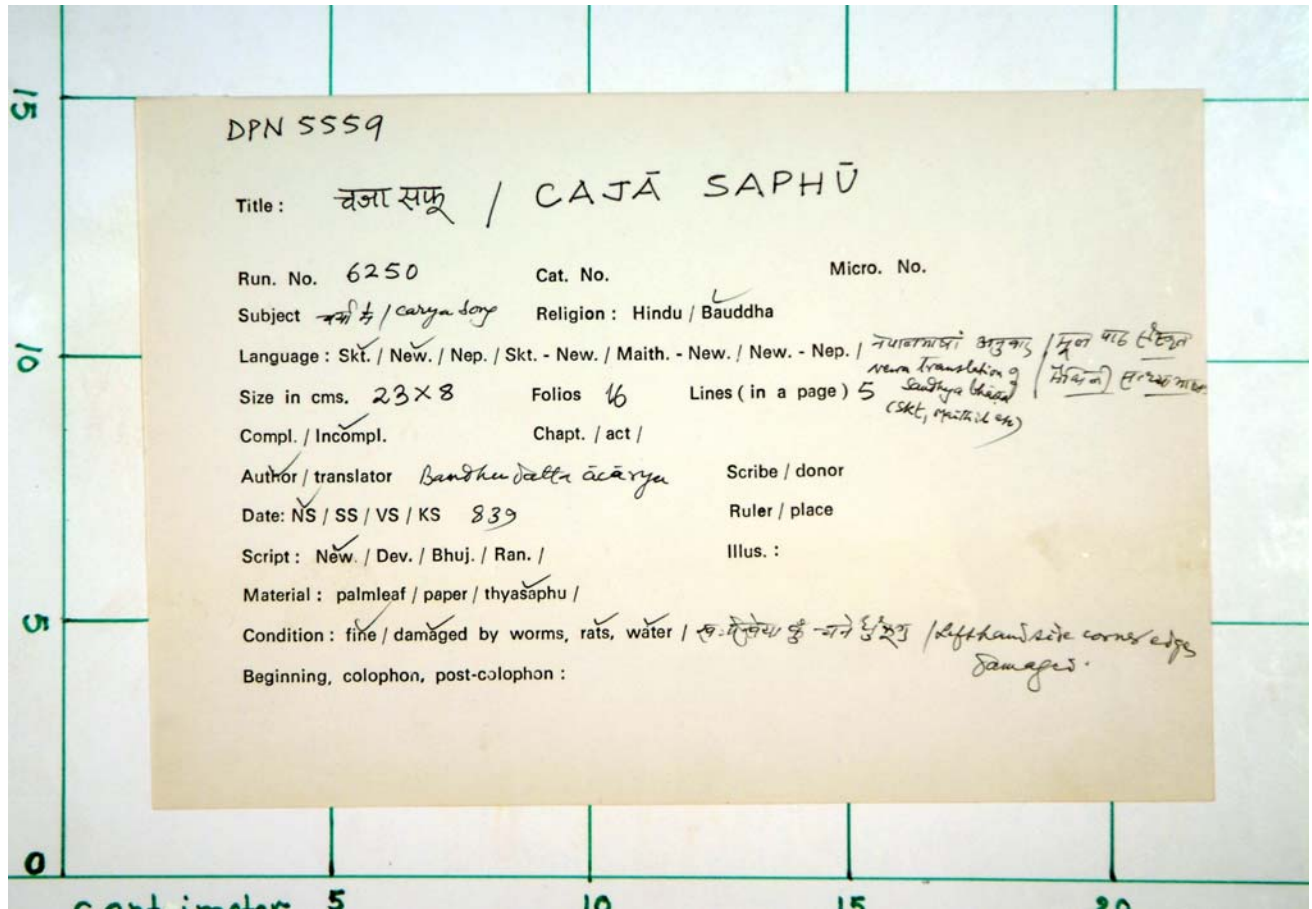 15
DPN 5559
Title : चजा सफू / CAJĀ SAPHŪ
Run. No. 6250 Cat. No. Micro. No.
Subject / carya song Religion : Hindu / Bauddha
10
Language : Skt. / New. / Nep. / Skt. - New. / Maith. - New. / New. - Nep. / अनुवाद / मूल पाठ
Newa Translation of
Size in cms. 23 × 8 Folios 16 Lines ( in a page ) 5 Sandhya bhasa
(Skt, Maithil etc)
Compl. / Incompl. Chapt. / act /
Author / translator Bandhudatta ācārya Scribe / donor
Date: NS / SS / VS / KS 839 Ruler / place
Script : New. / Dev. / Bhuj. / Ran. / Illus. :
Material : palmleaf / paper / thyasaphu /
5
Condition : fine / damaged by worms, rats, water / / Lefthand side corner edges
damaged.
Beginning, colophon, post-colophon :
0
centimeter 5 10 15 20